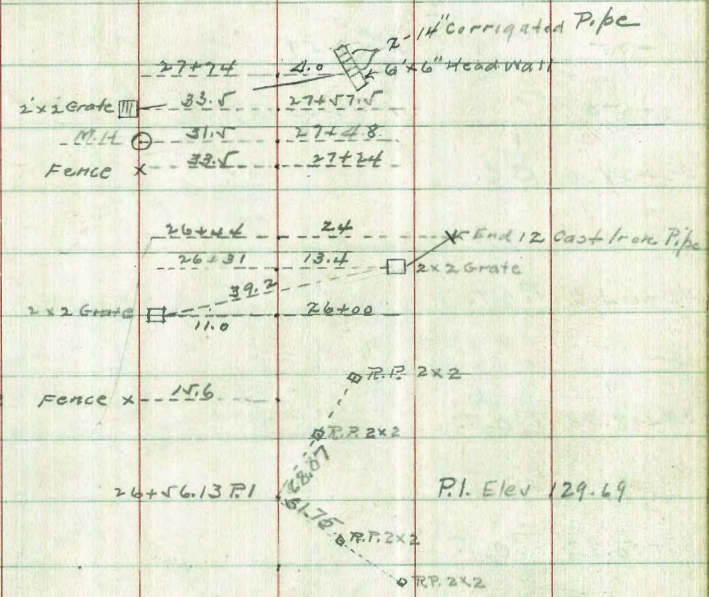 2-14" Corrigated Pipe
27+74 4.0 6'x6" Head Wall
2'x2 Grate 33.5 27+57.5
M.H 31.5 27+48
Fence x 33.5 27+24
26+44 24 End 12 Cast Iron Pipe
26+31 13.4 2x2 Grate
39.2
2x2 Grate 11.0 26+00
R.P. 2x2
Fence x 15.6
R.P. 2x2
26+56.13 P.I P.I. Elev 129.69
61.75
R.P. 2x2
R.P. 2x2